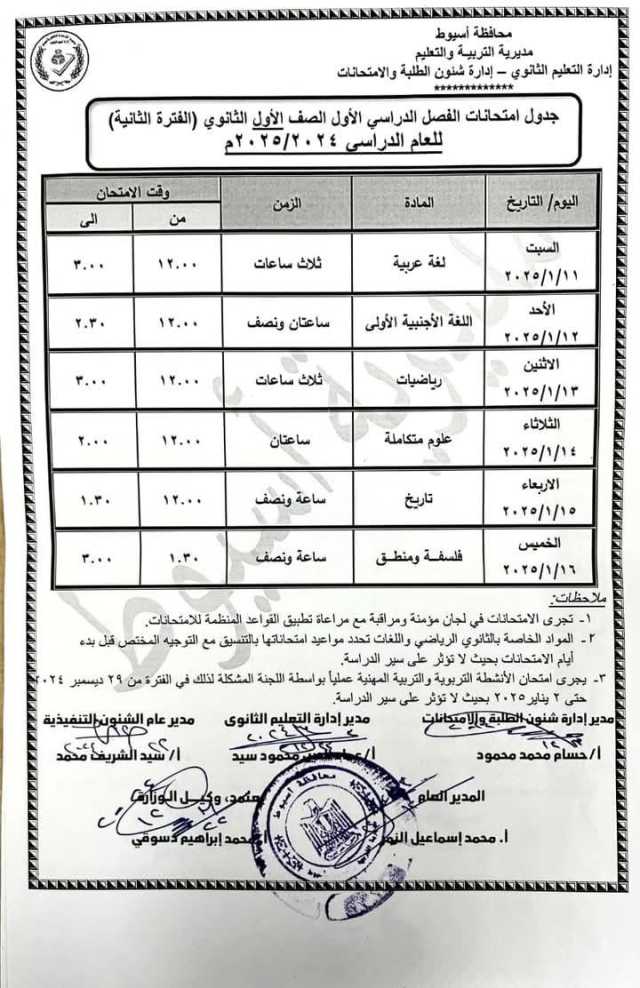 محافظة أسيوط
مديرية التربية والتعليم
إدارة التعليم الثانوي – إدارة شئون الطلبة والامتحانات
*************
جدول امتحانات الفصل الدراسي الأول الصف الأول الثانوي (الفترة الثانية)
للعام الدراسي ٢٠٢٥/٢٠٢٤م
اليوم/ التاريخ المادة الزمن وقت الامتحان
من الى
السبت
٢٠٢٥/١/١١ لغة عربية ثلاث ساعات ١٢.٠٠ ٣.٠٠
الأحد
٢٠٢٥/١/١٢ اللغة الأجنبية الأولى ساعتان ونصف ١٢.٠٠ ٢.٣٠
الاثنين
٢٠٢٥/١/١٣ رياضيات ثلاث ساعات ١٢.٠٠ ٣.٠٠
الثلاثاء
٢٠٢٥/١/١٤ علوم متكاملة ساعتان ١٢.٠٠ ٢.٠٠
الاربعاء
٢٠٢٥/١/١٥ تاريخ ساعة ونصف ١٢.٠٠ ١.٣٠
الخميس
٢٠٢٥/١/١٦ فلسفة ومنطق ساعة ونصف ١.٣٠ ٣.٠٠
مديرية أسيوط
ملاحظات:
١- تجرى الامتحانات في لجان مؤمنة ومراقبة مع مراعاة تطبيق القواعد المنظمة للامتحانات.
٢- المواد الخاصة بالثانوي الرياضي واللغات تحدد مواعيد امتحاناتها بالتنسيق مع التوجيه المختص قبل بدء
أيام الامتحانات بحيث لا تؤثر على سير الدراسة.
٣- يجرى امتحان الأنشطة التربوية والتربية المهنية عملياً بواسطة اللجنة المشكلة لذلك في الفترة من ٢٩ ديسمبر ٢٠٢٤
حتى ٢ يناير ٢٠٢٥ بحيث لا تؤثر على سير الدراسة.
مدير إدارة شئون الطلبة والامتحانات مدير إدارة التعليم الثانوى مدير عام الشئون التنفيذية
أ/ حسام محمد محمود محمود سيد أ/ سيد الشريف محمد
المدير العام يعتمد، وكيل الوزارة
أ. محمد إسماعيل النمر أ. محمد إبراهيم دسوقي
محافظة أسيوط